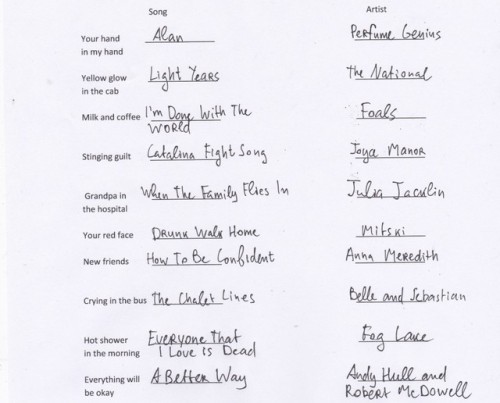 Song Artist
Your hand Alan Perfume Genius
in my hand
Yellow glow Light Years The National
in the cab
Milk and coffee I'm Done With The Foals
World
Stinging guilt Catalina Fight Song Joya Manor
Grandpa in When The Family Flies In Julia Jacklin
the hospital
Your red face Drunk Walk Home Mitski
New friends How To Be Confident Anna Meredith
Crying in the bus The Chalet Lines Belle and Sebastian
Hot shower Everyone That Fog Lake
in the morning I Love is Dead
Everything will A Better Way Andy Hull and
be okay Robert McDowell